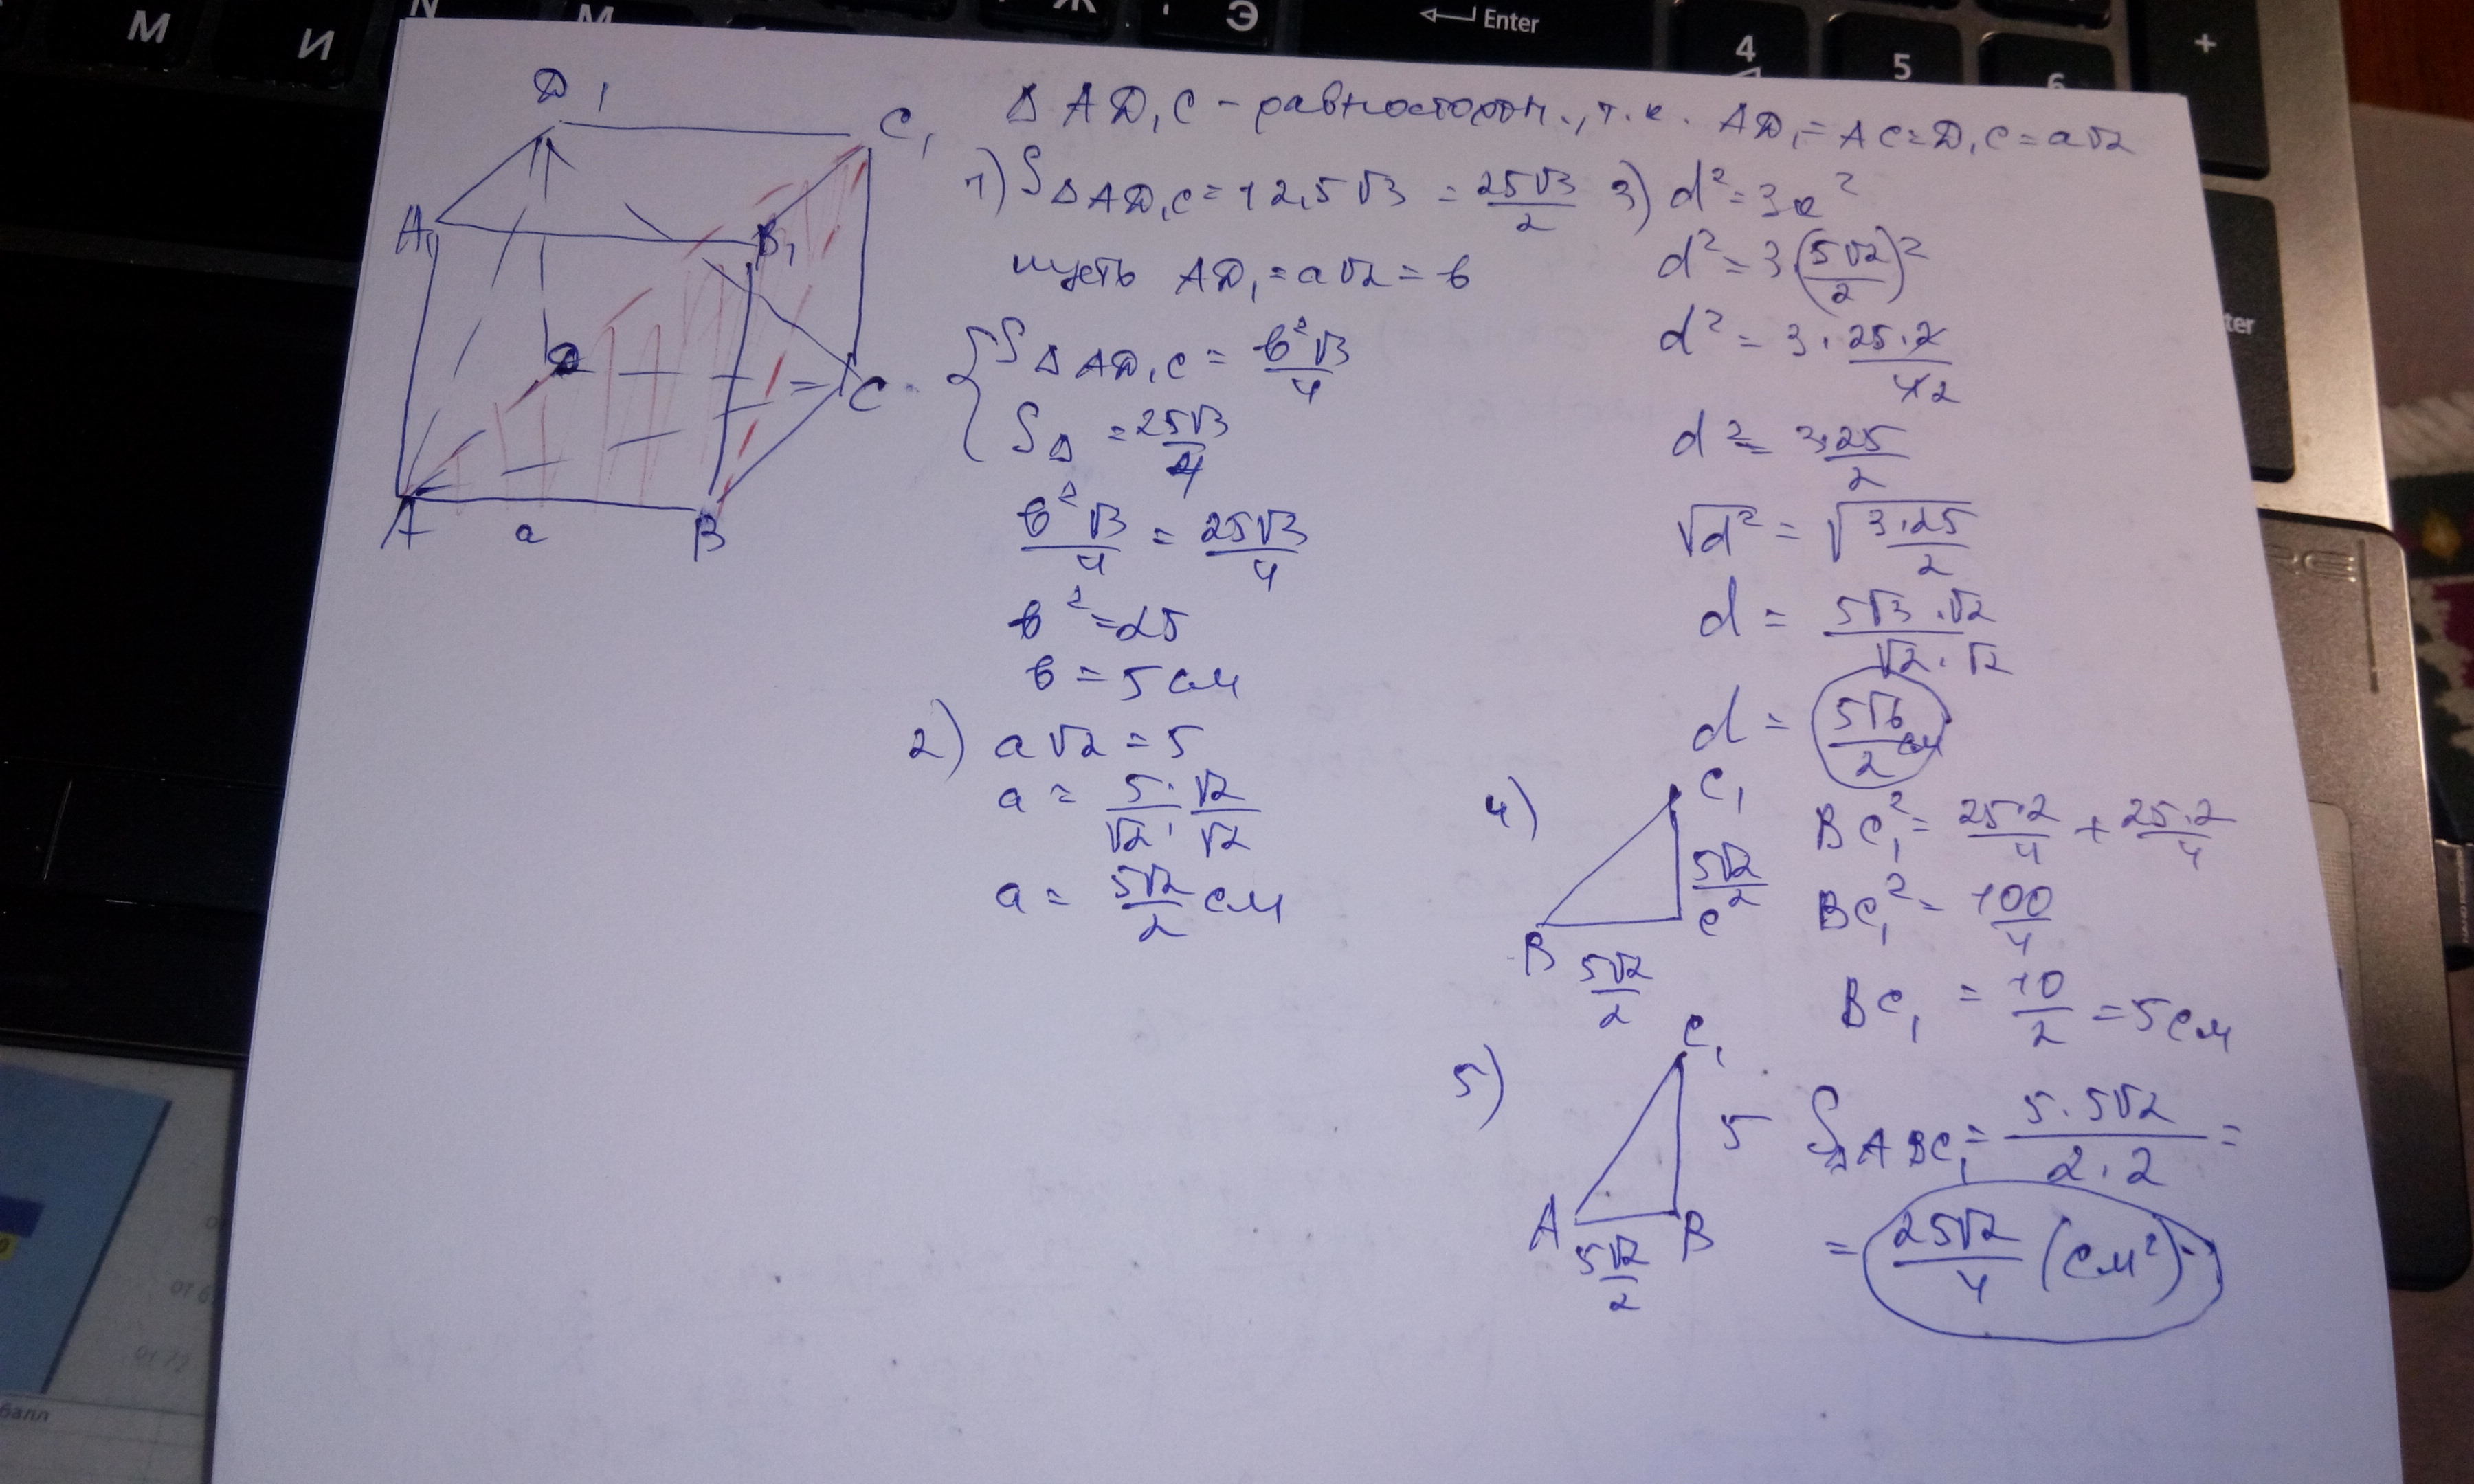 М И N М Ж Э Enter 4 5 6 +
ter
D₁
C₁
A₁
B₁
D
C
A
a
B
Δ AD₁C - равносторон., т.к. AD₁ = AC = D₁C = a√2
1) S Δ AD₁C = 12,5√3 = 25√3/2
пусть AD₁ = a√2 = b
{ S Δ AD₁C = b²√3/4
S Δ = 25√3/4
b²√3/4 = 25√3/4
b² = 25
b = 5 см
2) a√2 = 5
a = 5·√2/√2·√2
a = 5√2/2 см
3) d² = 3a²
d² = 3·(5√2/2)²
d² = 3·25·2/4 2
d² = 3·25/2
√d² = √3·25/2
d = 5√3·√2/√2·√2
d = 5√6/2 см
4) C₁
5√2/2
C
B
5√2/2
BC₁² = 25·2/4 + 25·2/4
BC₁² = 100/4
BC₁ = 10/2 = 5 см
5) C₁
5
A
B
5√2/2
S Δ ABC₁ = 5·5√2/2·2 =
= 25√2/4 (см²).
балл